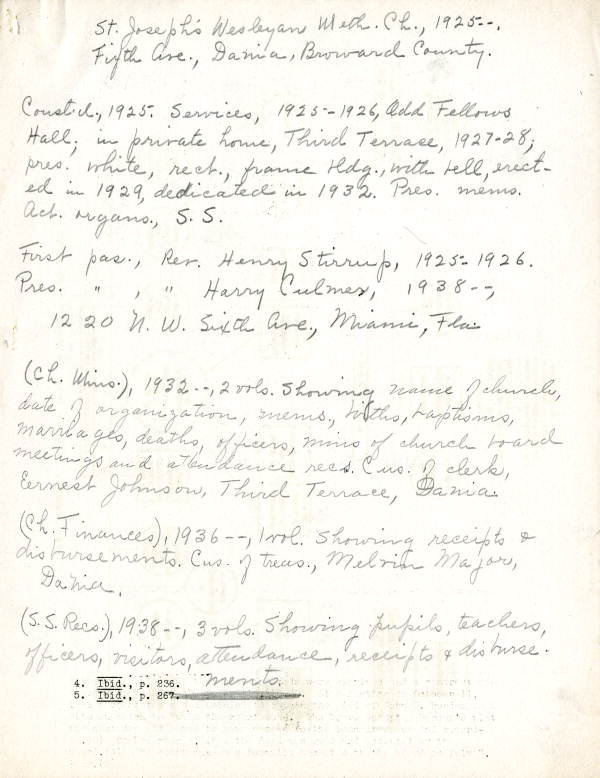 St. Joseph's Wesleyan Meth. Ch., 1925--,
Fifth Ave., Dania, Broward County.
Const'd., 1925. Services, 1925-1926, Odd Fellows
Hall; in private home, Third Terrace, 1927-28;
pres. white, rect., frame bldg., with bell, erect-
ed in 1929, dedicated in 1932. Pres. mems.
Act. organs., S. S.
First pas., Rev. Henry Stirrup, 1925-1926.
Pres. " , " Harry Culmer, 1938--,
1220 N. W. Sixth Ave., Miami, Fla.
(Ch. Mins.), 1932--, 2 vols. Showing name of church,
date of organization, mems., births, baptisms,
marriages, deaths, officers, mins of church board
meetings and attendance recs. Cus. of clerk,
Eernest Johnson, Third Terrace, Dania.
(Ch. Finances), 1936--, 1 vol. Showing receipts &
disbursements. Cus. of treas., Melvin Major,
Dania.
(S.S. Recs.), 1938--, 3 vols. Showing pupils, teachers,
officers, visitors, attendance, receipts & disburse-
ments.
4. Ibid., p. 236.
5. Ibid., p. 267.